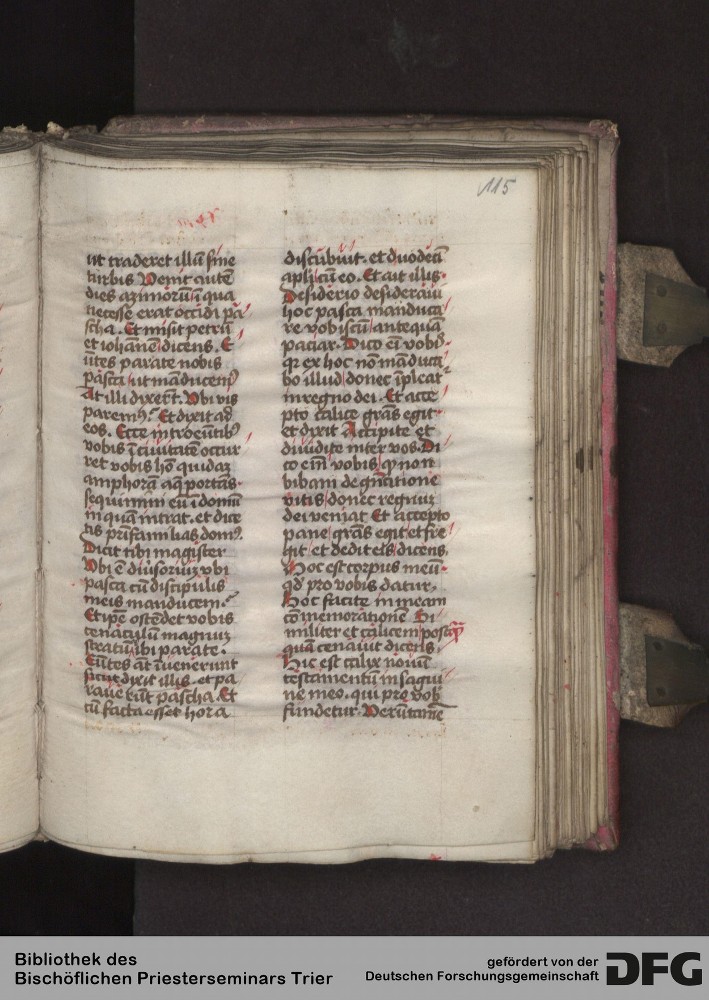 115
ut traderet illū sine
turbis Venit autē
dies azimorū ī qua
necesse erat occidi pa
scha. Et misit petrū
et iohannē dicens. E
untes parate nobis
pasca ut māducemꝰ
At illi dixerūt. Vbi vis
paremꝰ. Et dixit ad
eos. Ecce introeūtibꝰ
vobis ī ciuitatē occur
ret vobis hō quidaȝ
amphorā aq̄ portās.
sequimini eū ī domū
in quā intrat. et dice
tis prīfamilias domꝰ.
Dicit tibi magister
Vbi ē diuersoriuȝ vbi
pasca cū discipulis
meis manducem.
Et ipē ostēdet vobis
cenaculū magnuȝ
stratū ibi parate.
Eūtes āt īuenerunt
sicut dixit illis. et pa
rauerūt pascha. Et
cū facta esset hora
discubuit. et duodecī
apl̄i cū eo. Et ait illis.
Desiderio desideraui
hoc pasca manduca
re vobiscū antequā
paciar. Dico eī vobꝭ
qꝛ ex hoc nō māduca
bo illud donec īpleat
in regno dei. Et acce
pto calice grās egit
et dixit Accipite et
diuidite inter vos. Di
co eīn vobis qꝫ non
bibam de gn̄atione
vitis donec regnuȝ
dei veniat Et accepto
pane grās egit et fre
git et dedit eis dicens.
Hoc est corpus meū.
qd̄ pro vobis datur.
Hoc facite in meam
cōmemorationē Si
militer et calicem postqꝫ
quā cenauit dicens.
Hic est calix nouū
testamentū in sāgui
ne meo. qui pro vob
fundetur. Verūtamē
Bibliothek des
Bischöflichen Priesterseminars Trier
gefördert von der
Deutschen Forschungsgemeinschaft
DFG